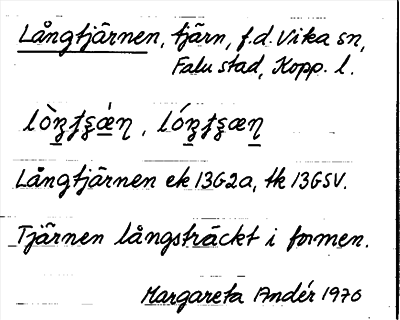 Långtjärnen, tjärn, f.d. Vika sn,
Falu stad, Kopp. l.
Långtjärnen ek 13G2a, tk 13GSV.
Tjärnen långsträckt i formen.
Margareta Andér 1970